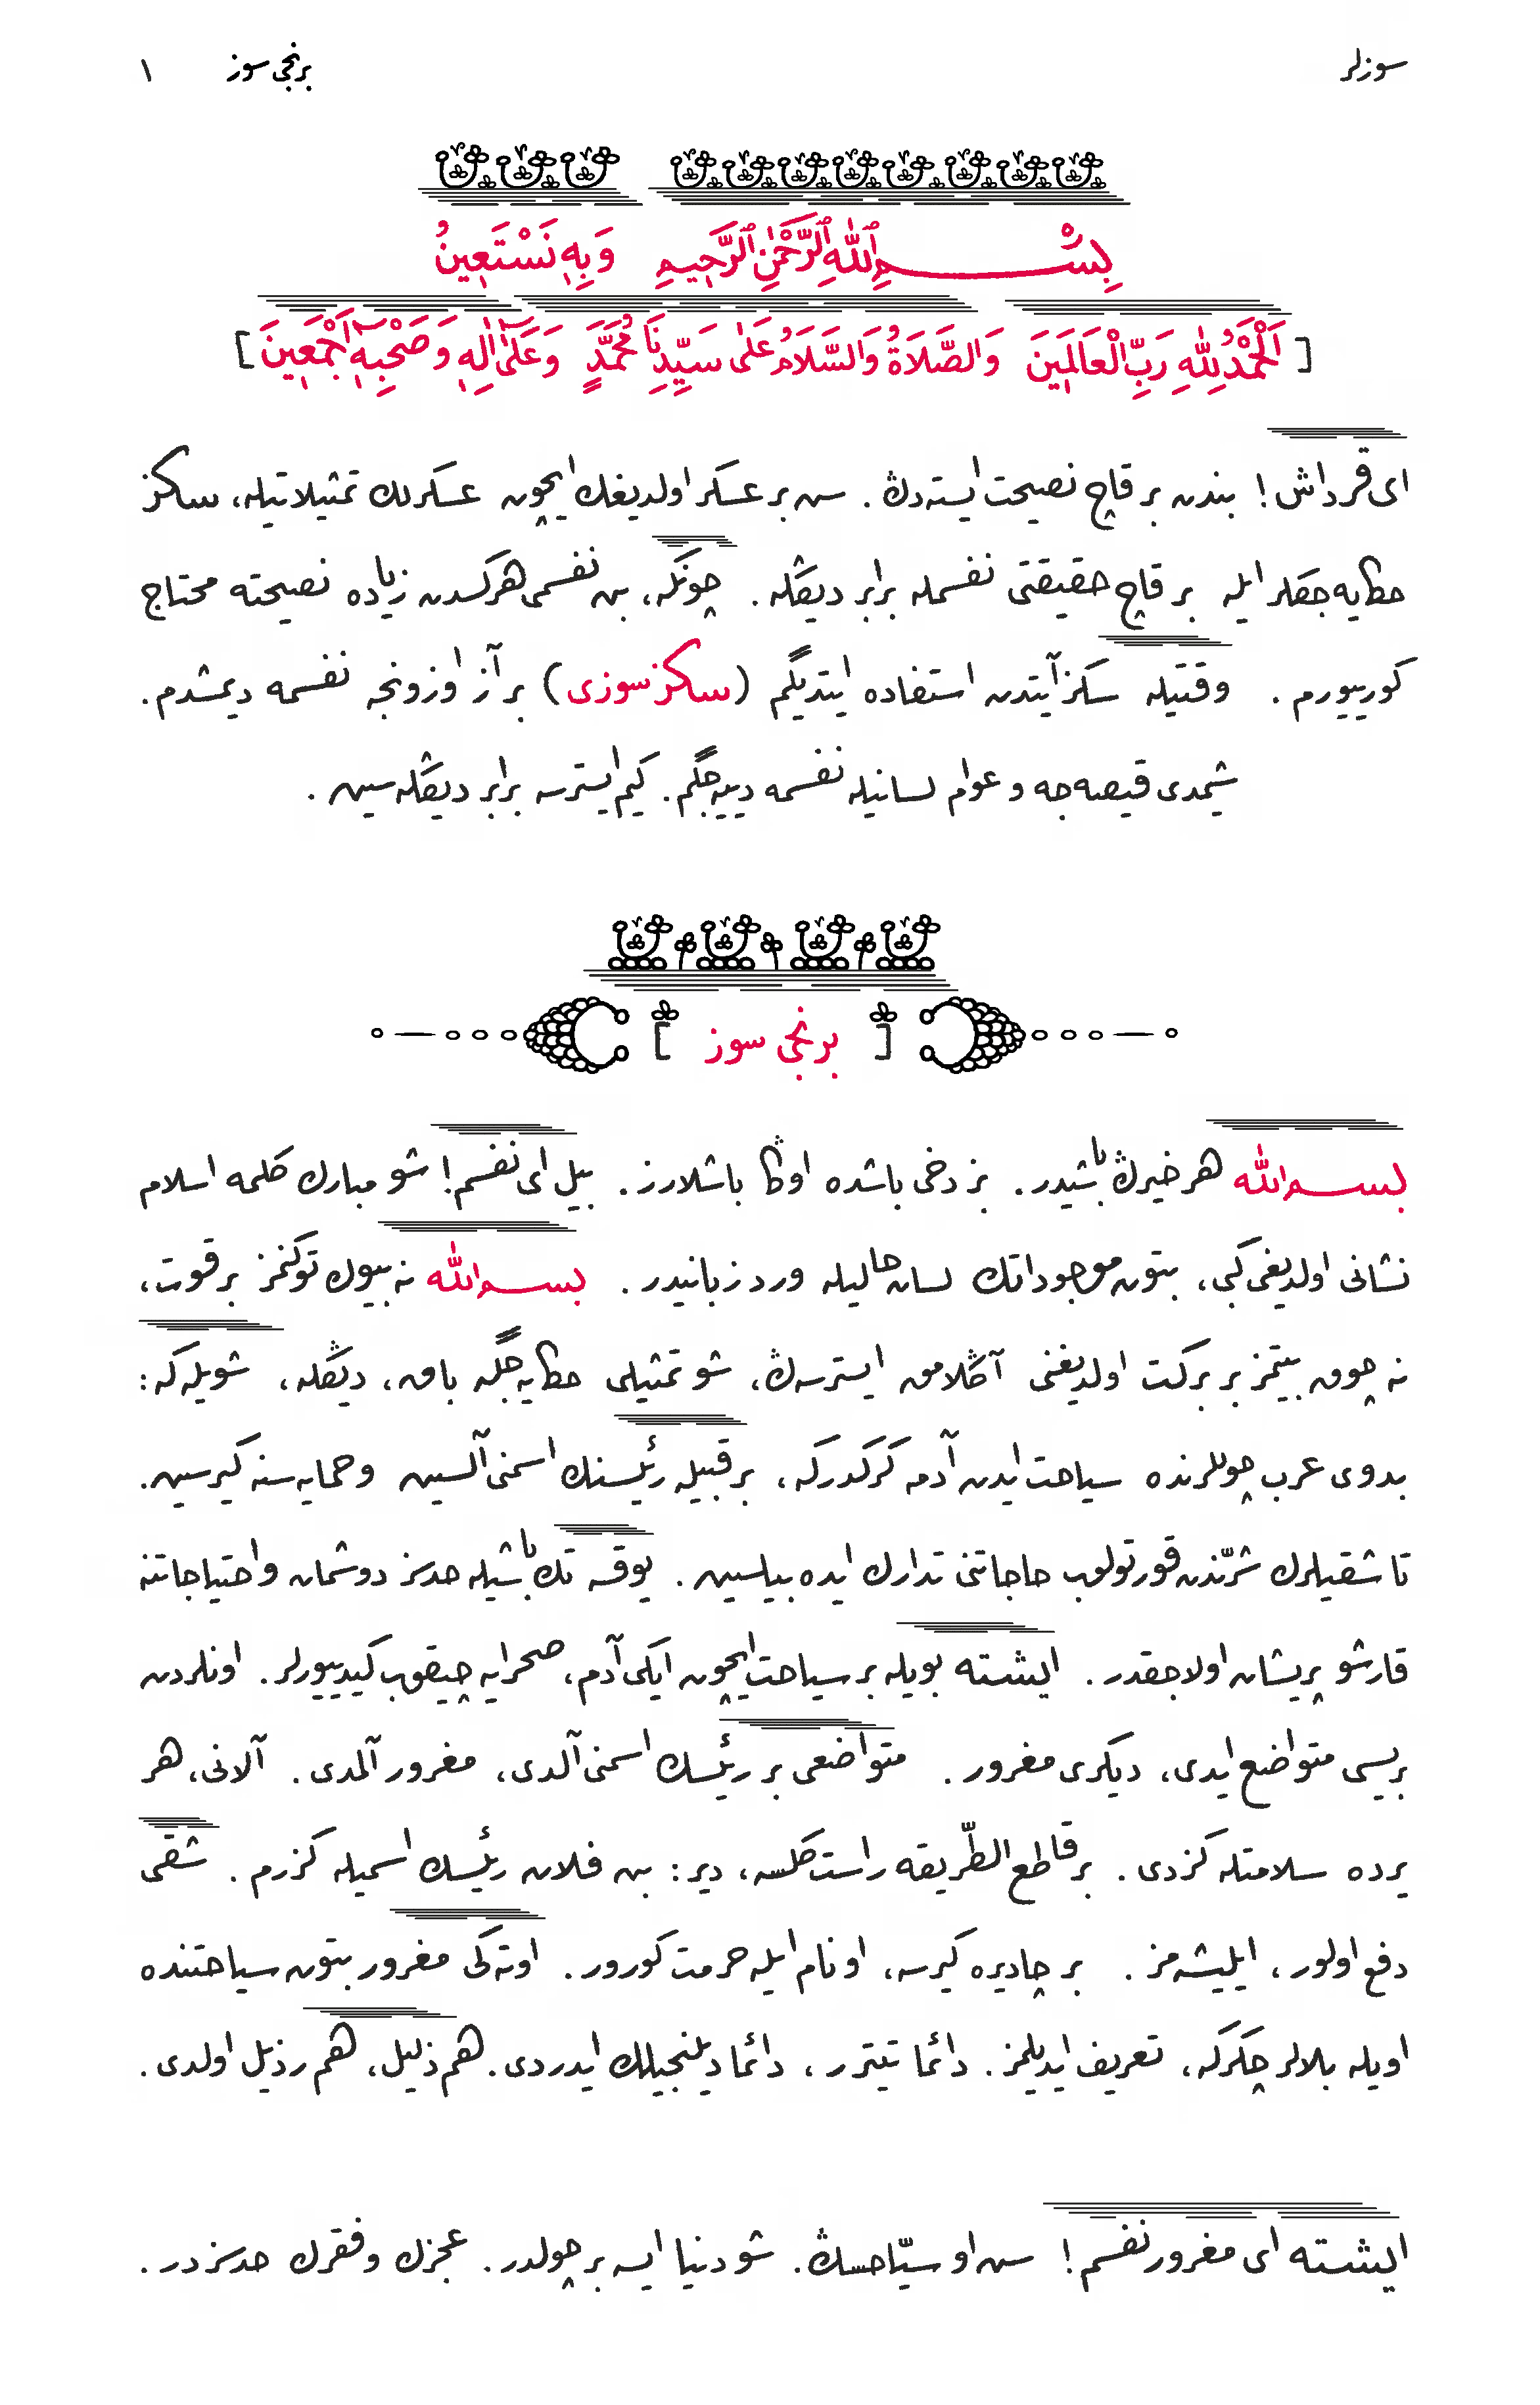 سوزلر برنجی سوز ١
بِسْمِ اللّٰهِ الرَّحْمٰنِ الرَّحِيمِ وَبِهِ نَسْتَعِينُ
[اَلْحَمْدُ لِلّٰهِ رَبِّ الْعَالَمِينَ وَالصَّلَاةُ وَالسَّلَامُ عَلٰى سَيِّدِنَا مُحَمَّدٍ وَعَلٰٓى اٰلِهِ وَصَحْبِهِٓ اَجْمَعِينَ]
ای قرداش! بندن بر قاچ نصیحت ایسته‌دڭ. سن بر عسكر اولدیغك ایچون عسكرلك تمثیلاتیله، سكز
حكایه‌جقلر ایله بر قاچ حقیقتی نفسمله برابر دیڭله. چونكه، بن نفسمی هركسدن زیاده نصیحته محتاج
كورییورم. وقتیله سكز آیتدن استفاده ایتدیگم (سكز سوزی) بر آز اوزونجه نفسمه دیمشدم.
شیمدی قیصه‌جه و عوام لسانیله نفسمه دییه‌جگم. كیم ایسترسه برابر دیڭله‌سین.
[برنجی سوز]
بسم الله هر خیرڭ باشیدر. بز دخی باشده اوڭا باشلارز. بیل ای نفسم! شو مبارك كلمه اسلام
نشانی اولدیغی كبی، بتون موجوداتك لسان حالیله ورد زبانیدر. بسم الله نه بیوك توكنمز بر قوت،
نه چوق بیتمز بر بركت اولدیغنی آڭلامق ایسترسه‌ڭ، شو تمثیلی حكایه‌جگه باق، دیڭله، شویله كه:
بدوی عرب چوللرنده سیاحت ایدن آدمه كركدركه، بر قبیله رئیسنك اسمنی آلسین و حمایه‌سنه كیرسین.
تا شقیلرك شرّندن قورتولوب حاجاتنی تدارك ایده بیلسین. یوقسه تك باشیله حدسز دوشمان و احتیاجاتنه
قارشو پریشان اولاجقدر. ایشته بویله بر سیاحت ایچون ایكی آدم، صحرایه چیقوب كیدییورلر. اونلردن
بریسی متواضع ایدی، دیكری مغرور. متواضعی بر رئیسك اسمنی آلدی، مغرور آلمدی. آلانی، هر
یرده سلامتله كزدی. بر قاطع الطّریقه راست كلسه، دیر: بن فلان رئیسك اسمیله كزرم. شقی
دفع اولور، ایلیشه‌مز. بر چادیره كیرسه، او نام ایله حرمت كورور. اوته‌كی مغرور بتون سیاحتنده
اویله بلالر چكركه، تعریف ایدیلمز. دائما تیتره‌ر، دائما دیلنجیلك ایدردی. هم ذلیل، هم رذیل اولدی.
ایشته ای مغرور نفسم! سن او سیّاحسڭ. شو دنیا ایسه بر چولدر. عجزك و فقرك حدسزدر.